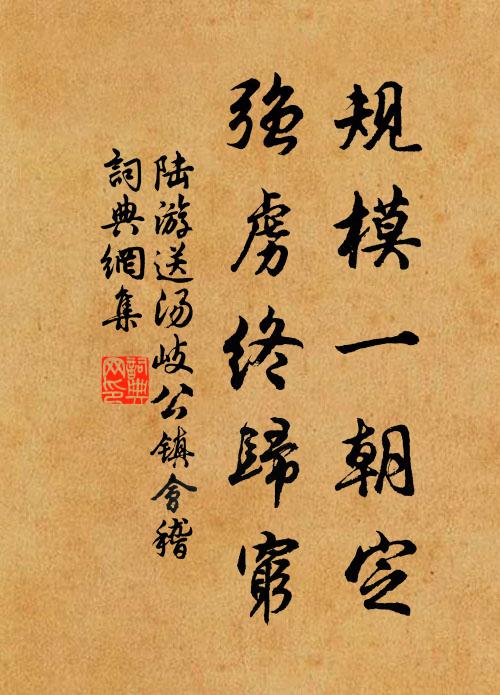 规模一朝定
强虏终歸窮
陆游送汤歧公镇會稽
詞典網集
詞典网印